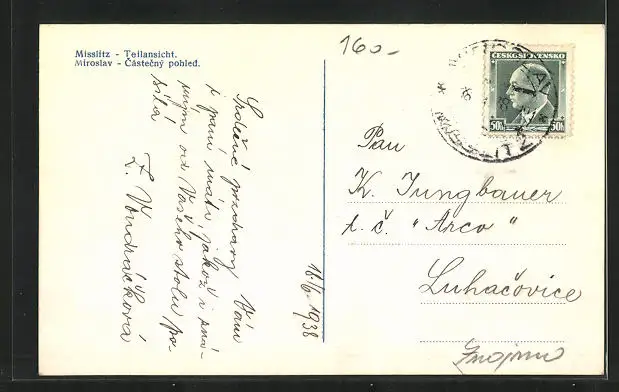 Misslitz - Teilansicht.
Miroslav - Částečný pohled.
160-
ČESKOSLOVENSKO
50h 50h
Srdečné pozdravy Vám
i paní máti, jakož i zná-
mým od Vašeho stolu po-
sílá
Z. Vondráčková
18./6. 1938
Pan
K. Jungbauer
t. č. "Arco"
Luhačovice
Znojmo